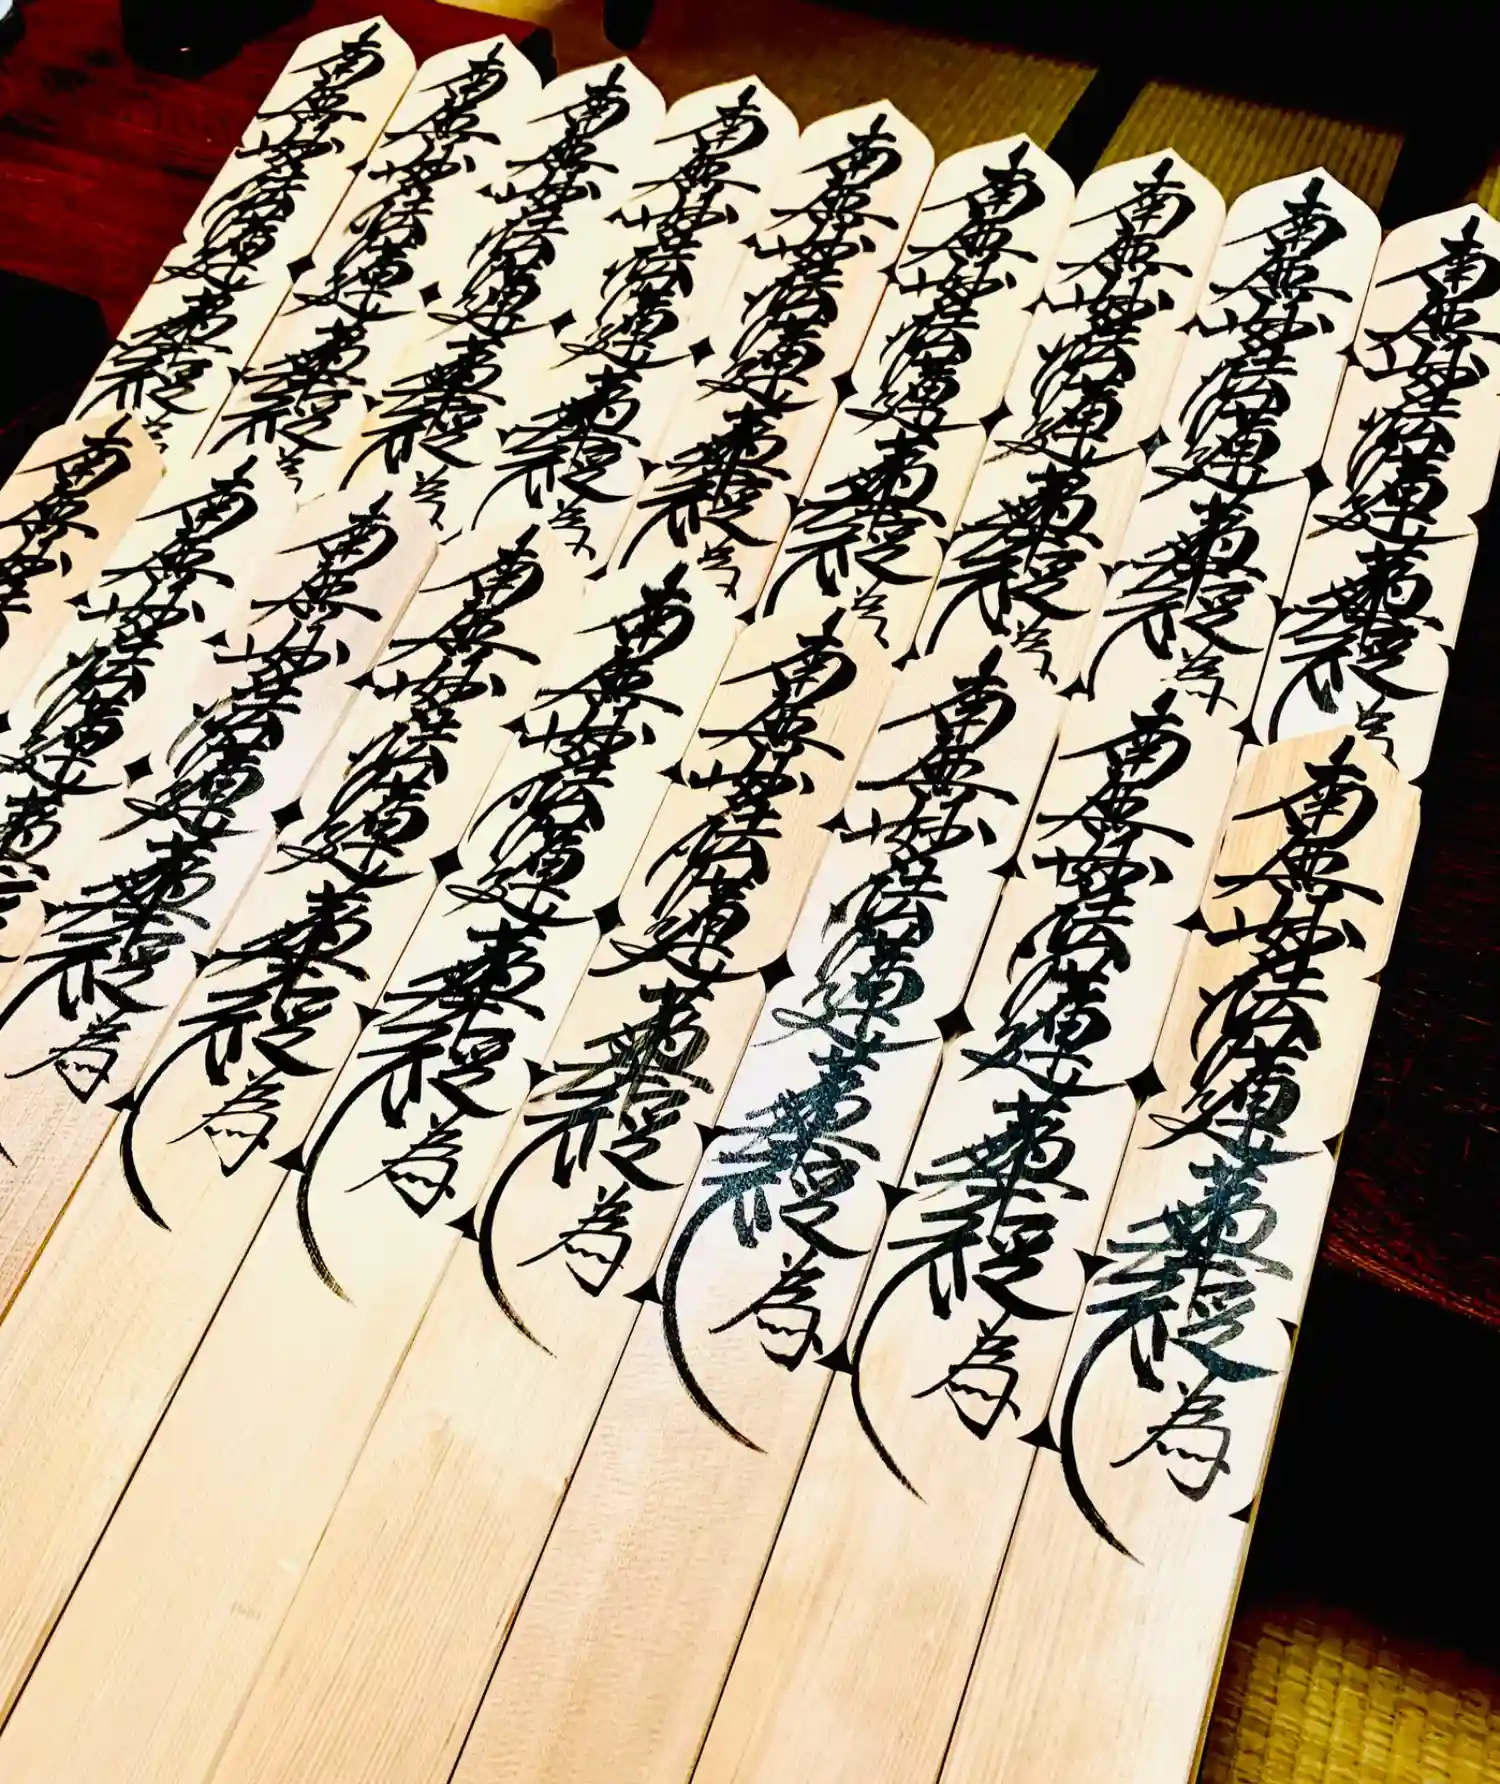 南無妙法蓮華経為
南無妙法蓮華経為
南無妙法蓮華経為
南無妙法蓮華経為
南無妙法蓮華経為
南無妙法蓮華経為
南無妙法蓮華経為
南無妙法蓮華経為
南無妙法蓮華経
南無妙法蓮華経為
南無妙法蓮華経為
南無妙法蓮華経為
南無妙法蓮華経為
南無妙法蓮華経為
南無妙法蓮華経為
南無妙法蓮華経為
南無妙法蓮華
南無妙